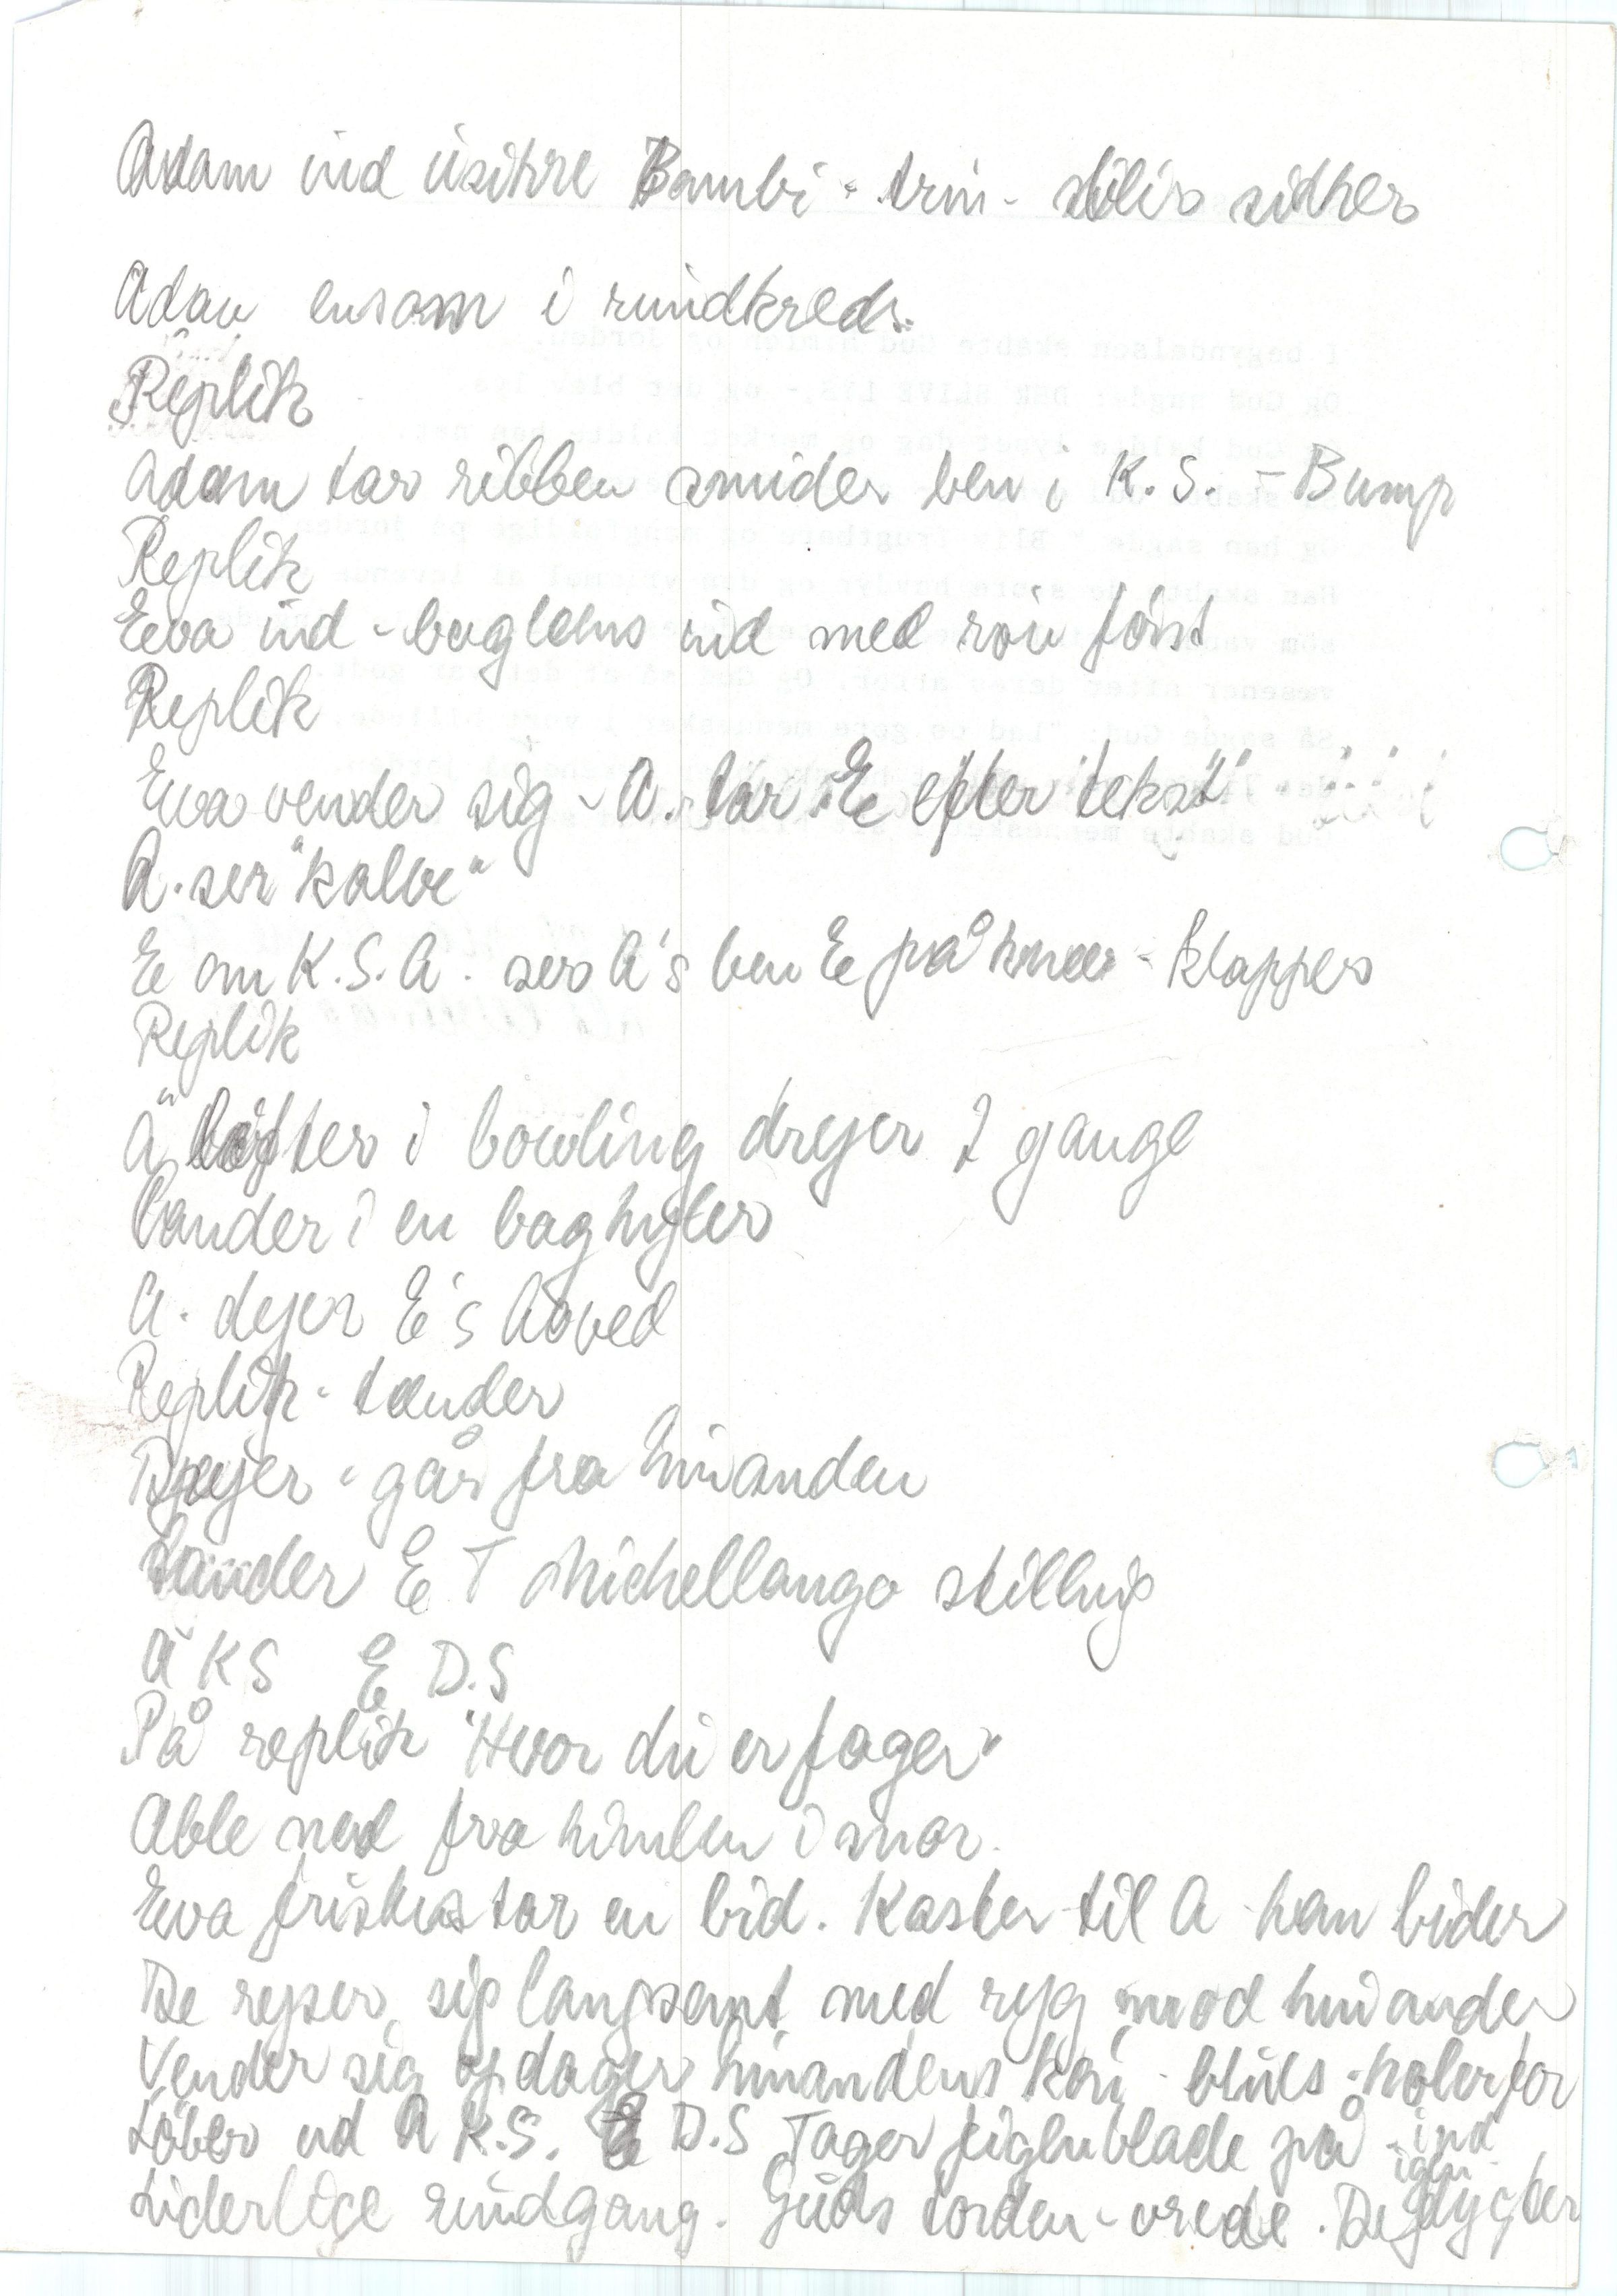 Adam ind usikre Bambi - trin - sidder
Adam ensom i rundkreds.
Replik
Adam tar ribben smider ben i K.S. - Bump
Replik
Eva ind - baglæns ind med røv først
Replik
Eva vender sig - A. lær E efter tekst
A. ser "kalve"
E om K.S. A. ser A's ben E på knæ - klapper
Replik
A løfter i bowling drejer 2 gange
lander i en bag hyler
A. dejer E's hoved
Replik - tænder
Drejer - går fra hinanden
lander E T Michellango stilling
A KS E D.S
På replik "Hvor du er fager"
Æble ned fra himlen i snor.
Eva fristes tar en bid. Kaster til A - han bider
De rejser sig langsomt med ryg mod hinanden
Vender sig opdager hinandens køn - blues - holer for
Løber ud A K.S. E D.S Tager figenblade på - ind igen
Liderlige rundgang. Guds torden - vrede. De flygter